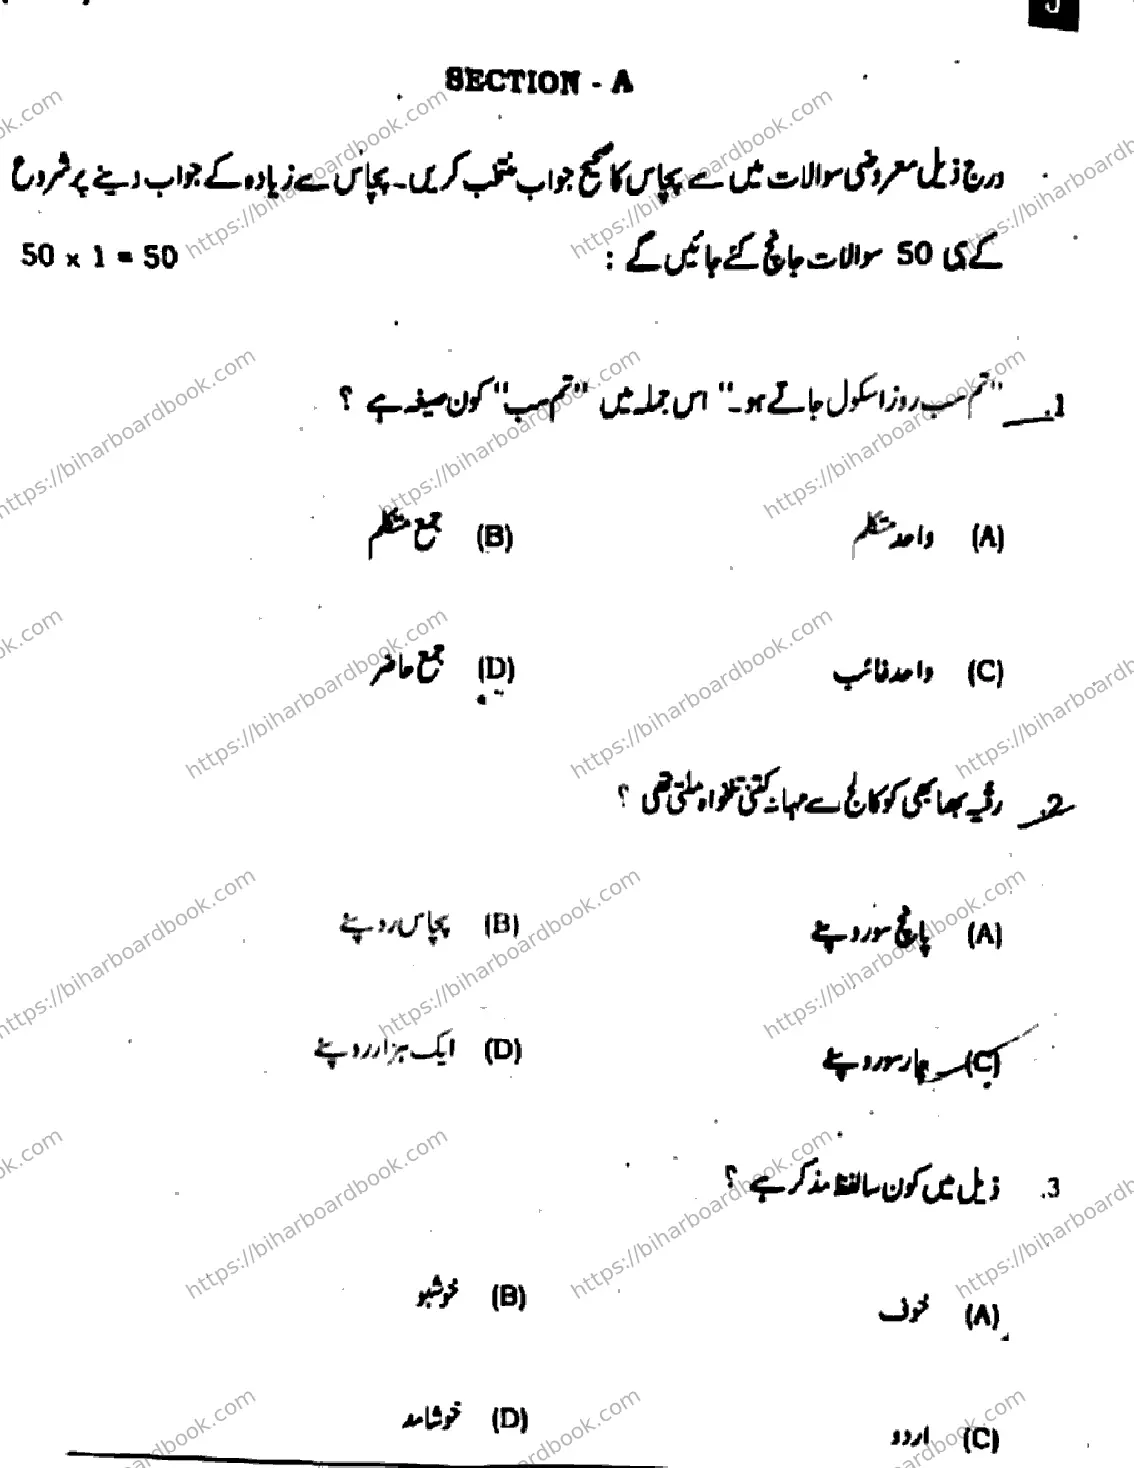 SECTION - A
درج ذیل معروضی سوالات میں سے پچاس کا صحیح جواب منتخب کریں۔ پچاس سے زیادہ کے جواب دینے پر شروع
کے ہی 50 سوالات جانچ کئے جائیں گے : 50 x 1 = 50
1. "تم سب روز اسکول جاتے ہو۔" اس جملہ میں "تم سب" کون صیغہ ہے ؟
(A) واحد متکلم (B) جمع متکلم
(C) واحد غائب (D) جمع حاضر
2. رقیہ بھابھی کو کالج سے مہانہ کتنی تنخواہ ملتی تھی ؟
(A) پانچ سو روپئے (B) پچاس روپئے
(C) چار سو روپئے (D) ایک ہزار روپئے
3. ذیل میں کون سا لفظ مذکر ہے ؟
(A) خوف (B) خوشبو
(C) اردو (D) خوشامد
https://biharboardbook.com